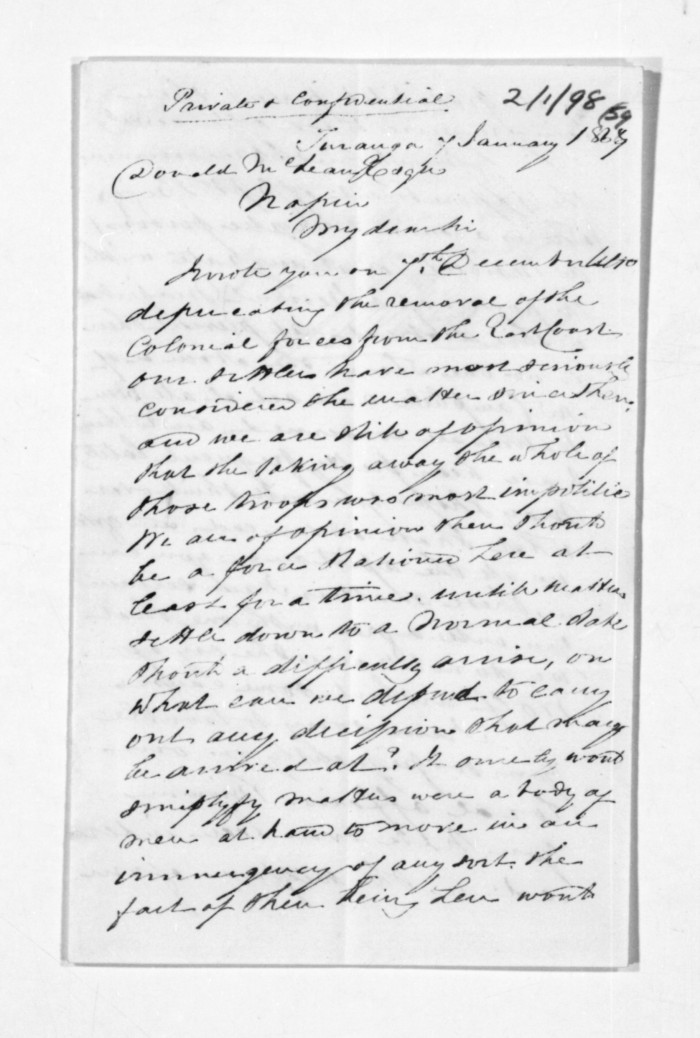 Private & Confidential 2/1/98 (59
Turanga 7 January 1867
Donald McLean Esqre
Napier
My dear Sir
I wrote you on 7th December
deprecating the removal of the
Colonial forces from the East Coast
our settlers have most seriously
considered the matter since then,
and we are still of opinion
that the taking away the whole of
those troops was most impolitic
We are of opinion there should
be a force stationed here at
least for a time. until matters
settle down to a normal state
Should a difficulty arrise, on
what can we depend to carry
out any decission that may
be arrived at? It would
simplyfy matters were a body of
men at hand to move in an
immergency of any sort. the
fact of their being here would